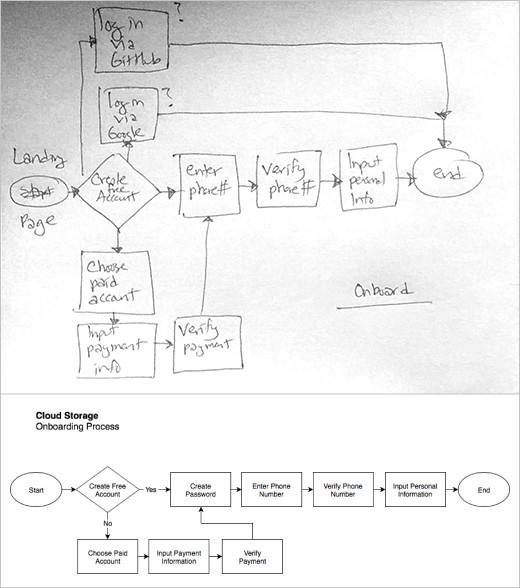 log in
via
GitHub
?
log in
via
Google
?
Landing
Start
Page
Create
free
Account
enter
phone#
Verify
phone#
Input
personal
Info
end
Choose
paid
account
Input
payment
info
Verify
payment
Onboard
Cloud Storage
Onboarding Process
Start
Create Free
Account
Yes
Create
Password
Enter Phone
Number
Verify Phone
Number
Input Personal
Information
End
No
Choose Paid
Account
Input Payment
Information
Verify
Payment